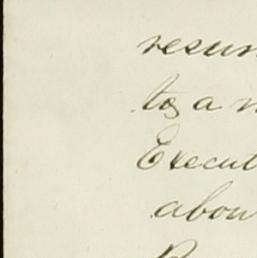 resum
to a
Execut
abou